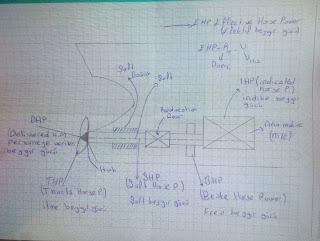 EHP Effective Horse Power
(Efektif beygir gücü)
EHP = R.V
Direnç
Hız
Şaft
Şaft
Reduction
Gear
IHP (indicated
horse P.)
indike beygir
gücü
DHP
(Delivered H.P.)
pervaneye verilen
beygir gücü
Hub
THP
(Thrust Horse P.)
itme beygir gücü
SHP
(Shaft Horse P.)
Şaft beygir gücü
BHP
(Brake Horse Power)
Fren beygir gücü